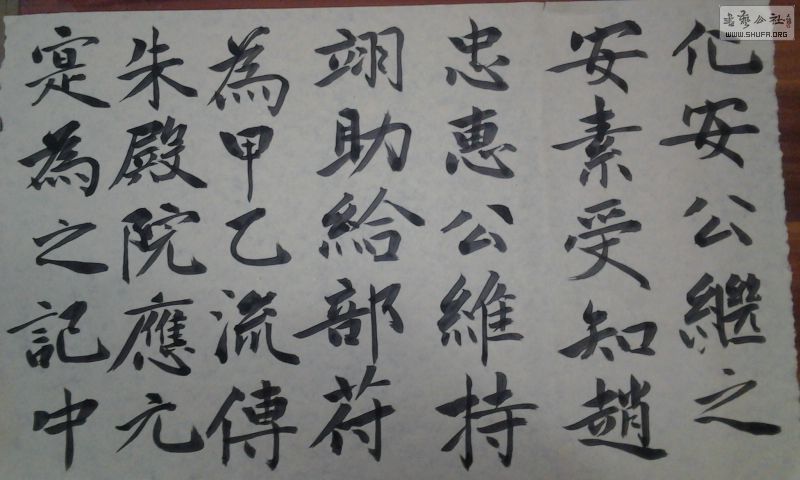 伱安公繼之
安素受知趙
忠惠公維持
翊助給部苻
為甲乙流傳
朱殿院應元
寔為之記中
書藝公社
WWW.SHUFA.ORG